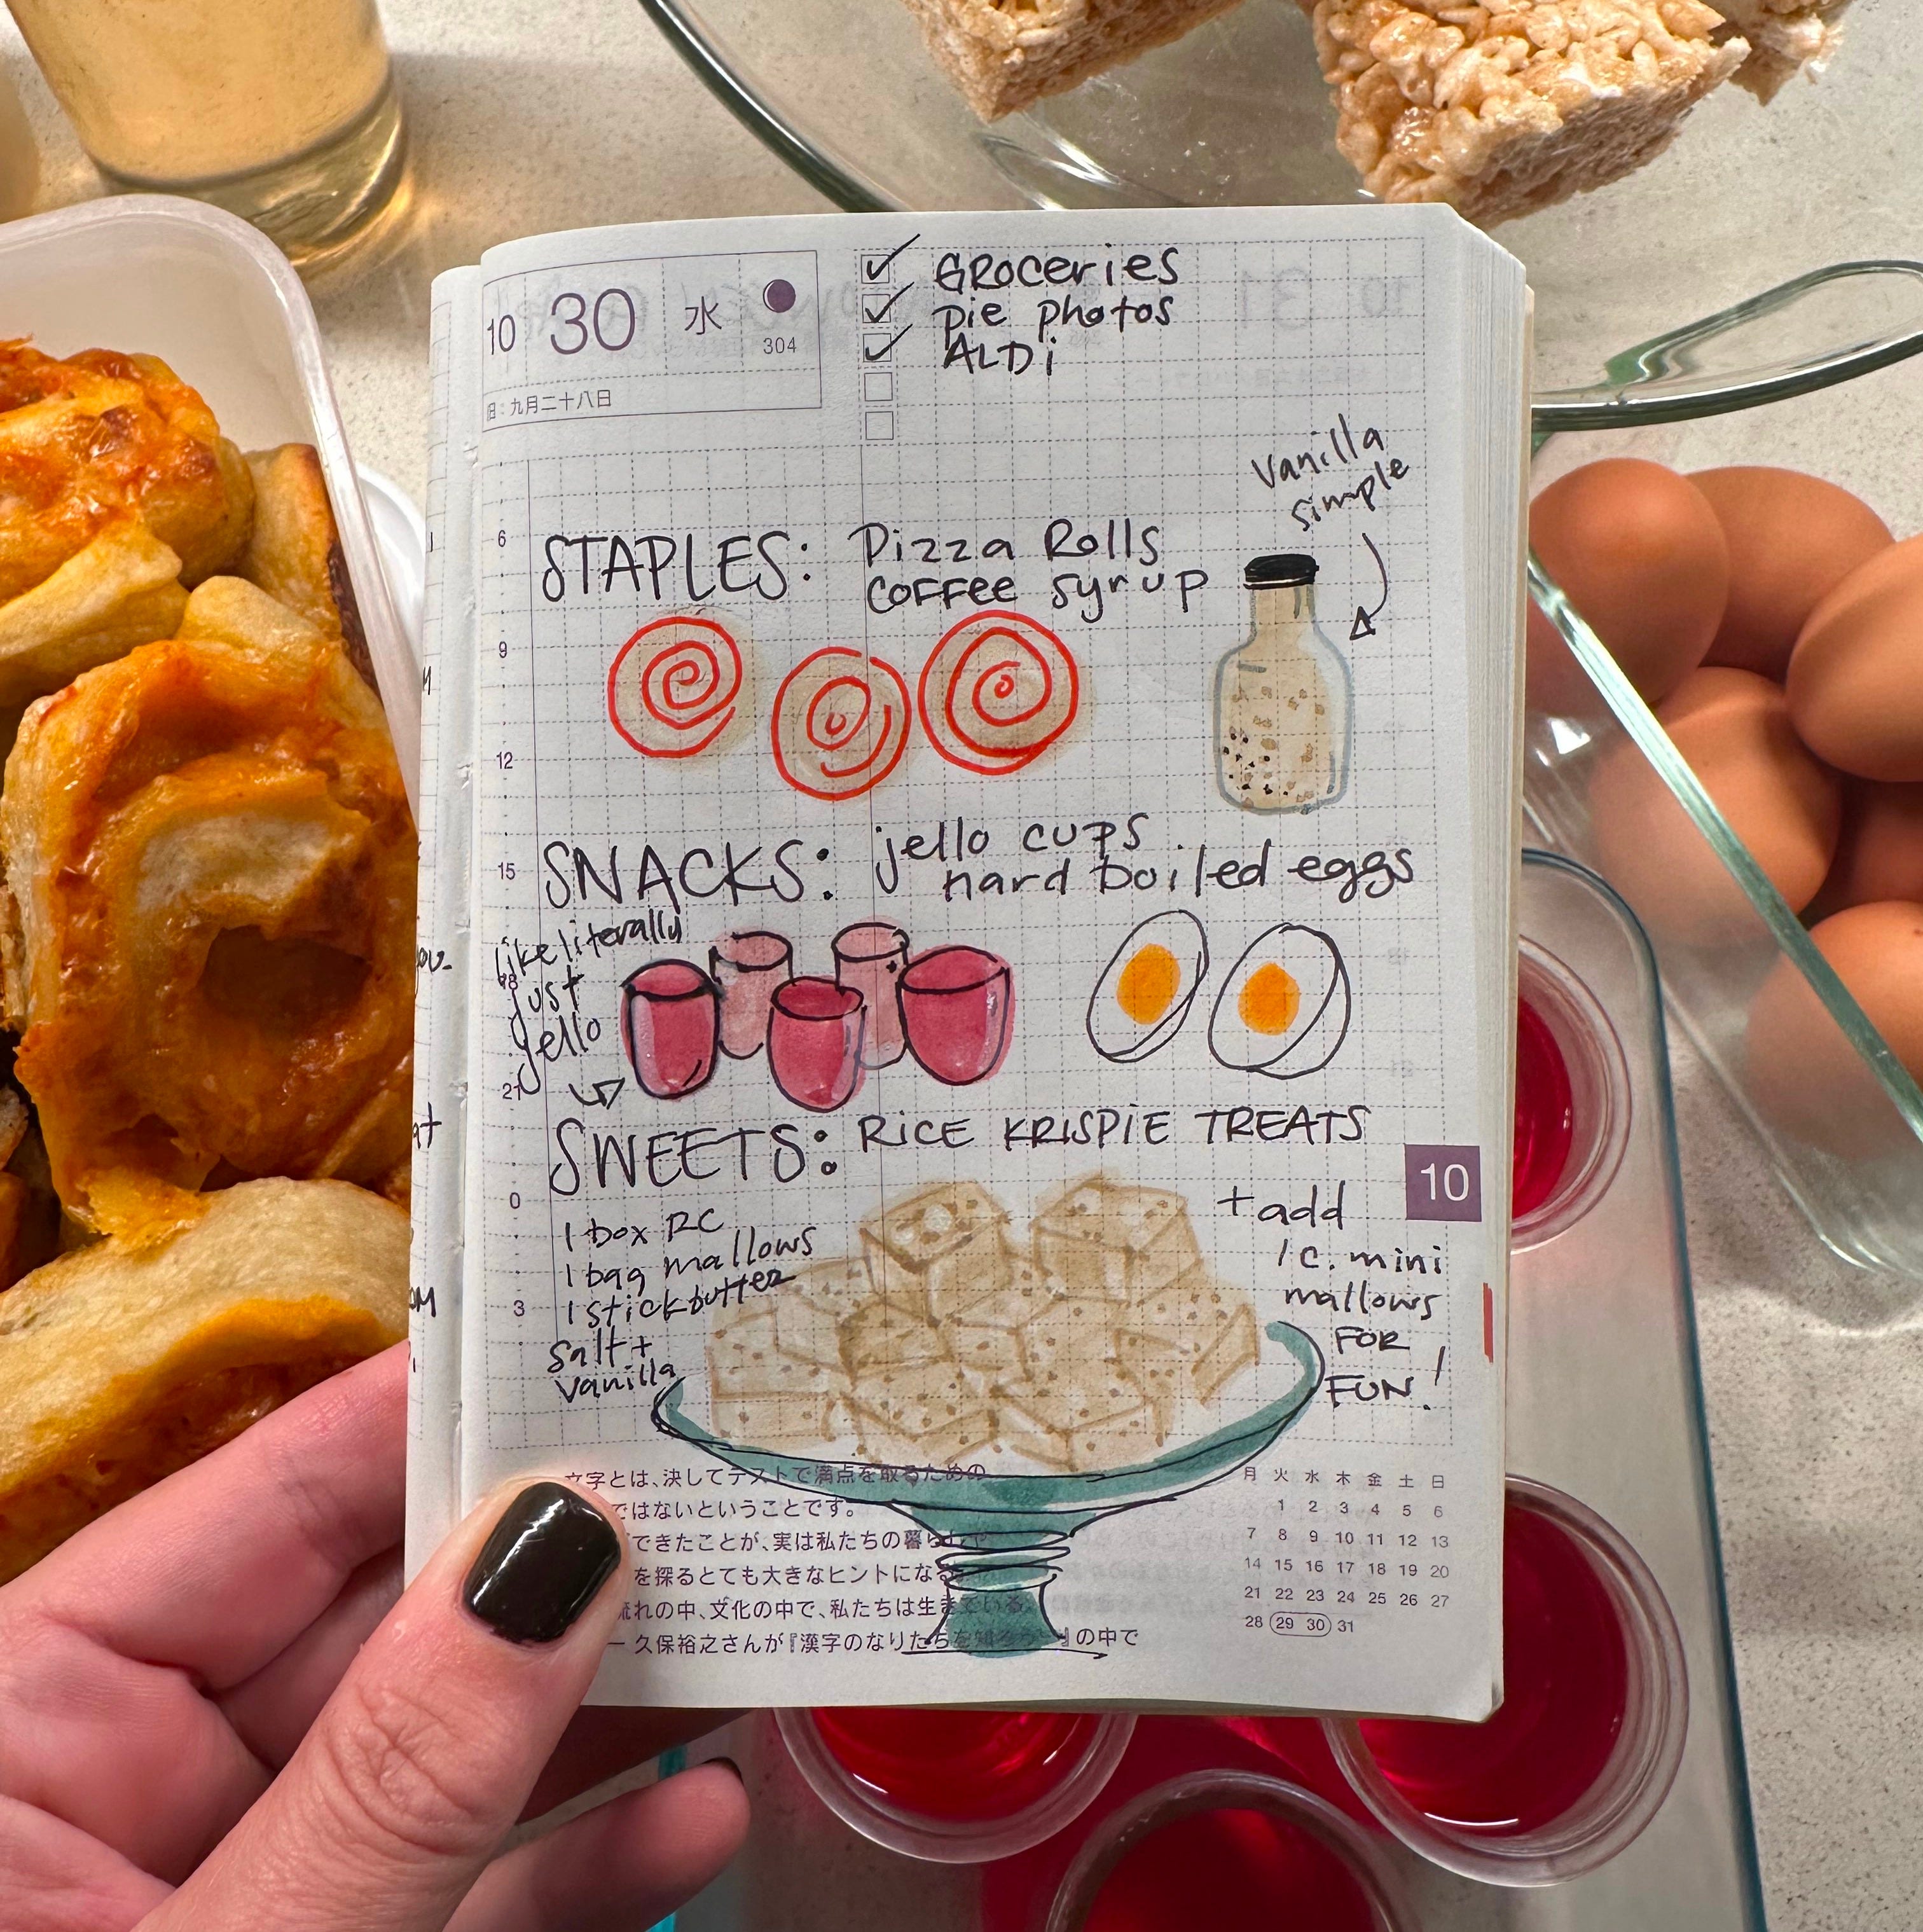 10 30 水
304
旧:九月二十八日
GROCERIES
pie photos
ALDi
Vanilla
simple
6
STAPLES: Pizza Rolls
COFFEE syrup
9
12
15
SNACKS: jello cups
hard boiled eggs
like literally
18
just
jello
21
SWEETS: RICE KRISPIE TREATS
10
0
1 box RC
1 bag mallows
1 stick butter
3
salt +
vanilla
+ add
1 c. mini
mallows
FOR
FUN!
文字とは、決してテストで満点を取るための
ではないということです。
できたことが、実は私たちの暮らしや
を探るとても大きなヒントになる
流れの中、文化の中で、私たちは生きている。
ー 久保裕之さんが『漢字のなりたちを知ろう』の中で
月 火 水 木 金 土 日
1 2 3 4 5 6
7 8 9 10 11 12 13
14 15 16 17 18 19 20
21 22 23 24 25 26 27
28 29 30 31